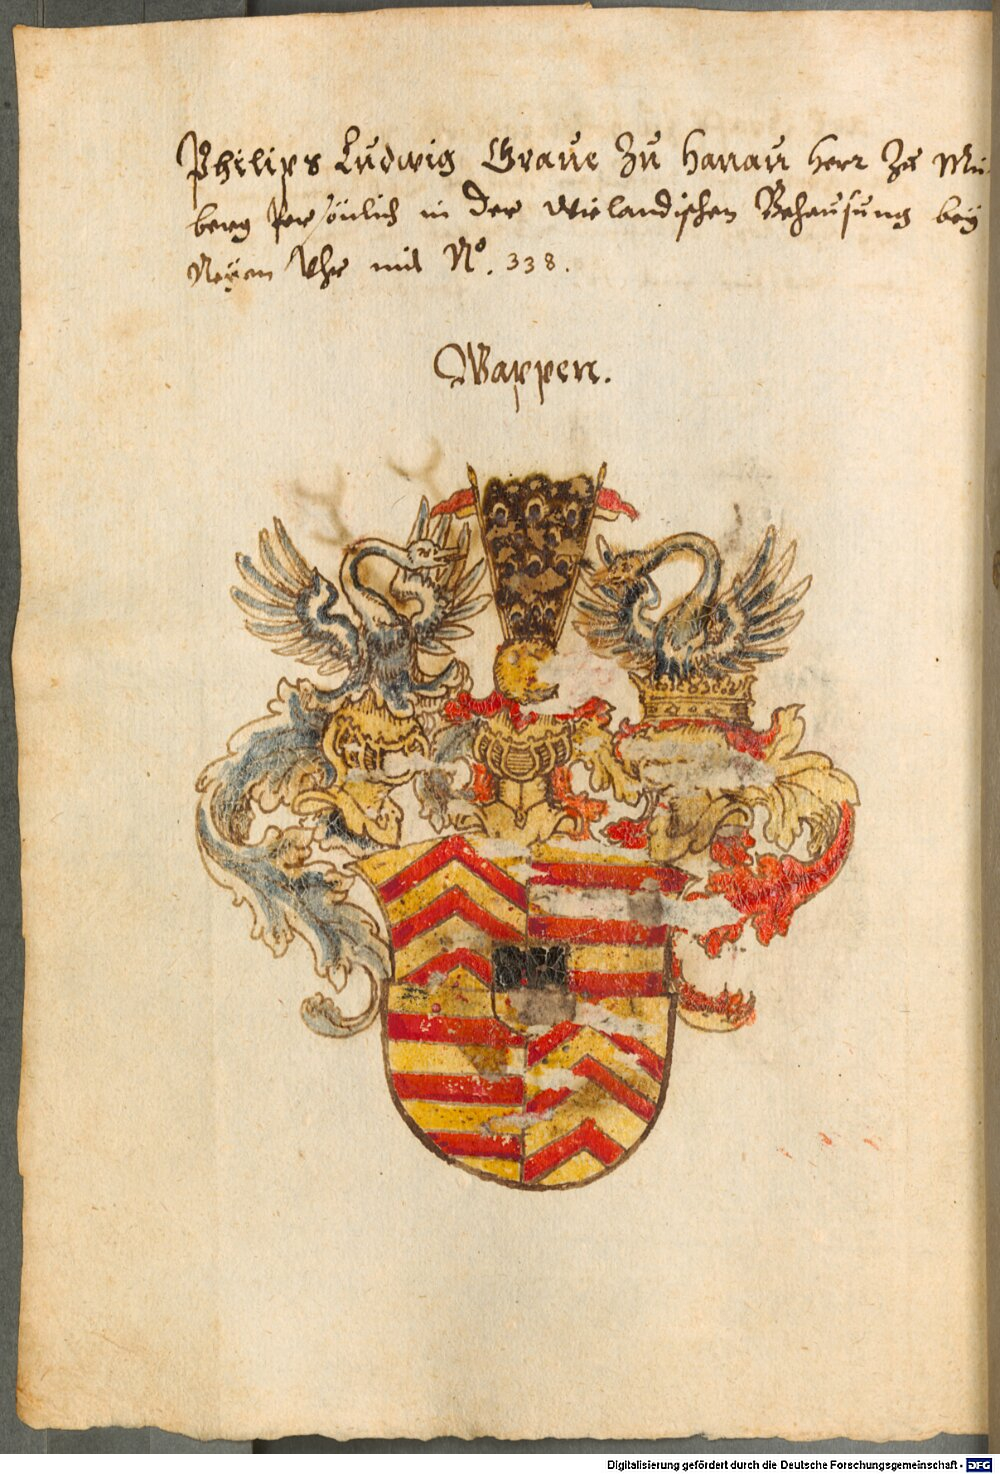 Philips Ludwig Graue Zu Hanau Herr Zu Mü-
berg Persönlich in der Wielandischen Behausung bey
Neuen Uhr mit No. 338.
Wappen.
Digitalisierung gefördert durch die Deutsche Forschungsgemeinschaft - DFG